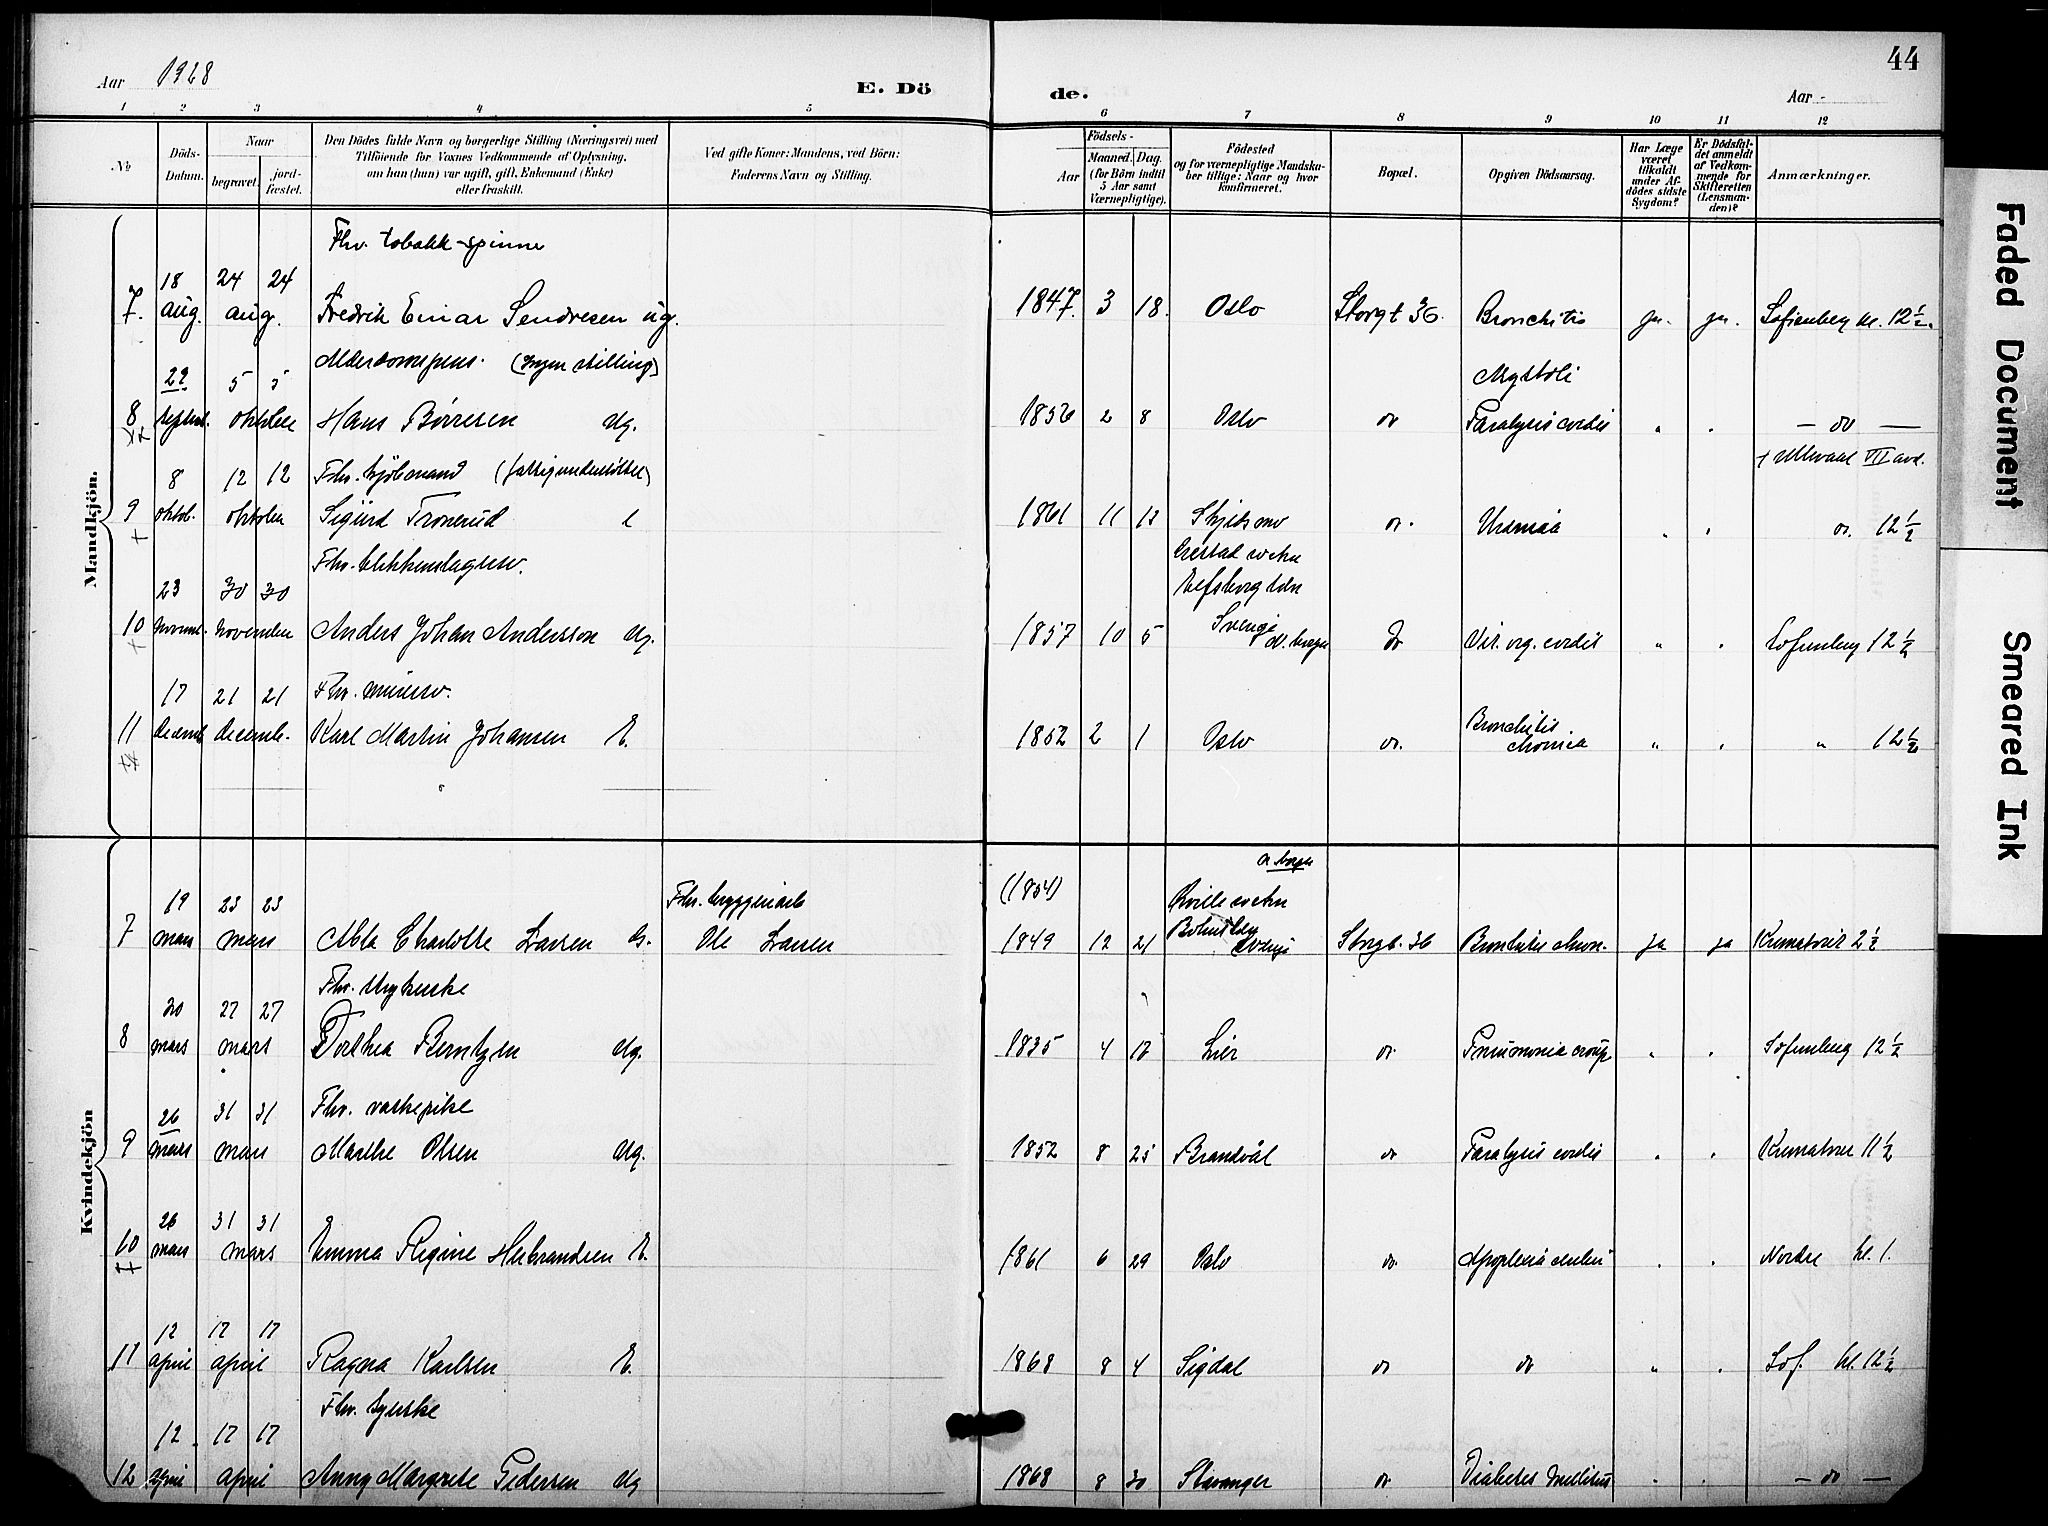 44
Aar 1928
E. Dö
de.
Aar
1 2 3 4 5 6 7 8 9 10 11 12
No
Döds-Datum.
Naar
begravet.
jord-fæstet.
Den Dödes fulde Navn og borgerlige Stilling (Næringsvei) med
Tilföiende for Voxnes Vedkommende af Oplysning,
om han (hun) var ugift, gift, Enkemand (Enke)
eller fraskilt.
Ved gifte Koner: Mandens, ved Börn:
Faderens Navn og Stilling.
Födsels-
Aar
Maaned. Dag.
(for Börn indtil
5 Aar samt
Værnepligtige).
Födested
og for værnepligtige Mandska-
ber tillige: Naar og hvor
konfirmeret.
Bopæl.
Opgiven Dödsaarsag.
Har Læge
været
tilkaldt
under Af-
dödes sidste
Sygdom?
Er Dödsfal-
det anmeldt
af Vedkom-
mende for
Skifteretten
(Lensman-
den)?
Anmærkninger.
Mandkjön.
Fhv. tobakk-spinner
18 24 24
7. aug. aug. Fredrik Einar Sendresen ug. 1847. 3 18. Oslo Storgt 36. Bronchitis ja. ja. Sofienberg kl. 12 1/2.
(ingen stilling)
29 5 5
8 septemb. oktober Hans Börresen Ug. 1856 2 8 Oslo do Paralysis cordis " " — do —
+ Ullevaal VII avd.
8 12 12 Fhv. (fattigunderstöttet)
9 oktob. oktober Sigurd Tronerud 1861 11 12 do. Uræmia " " do. 12 1/2
Fhv. blikkenslagersv.
23 30 30
Elfsborg län
10 novemb. november Anders Johan Andersson Ug. 1857 10 5 Sverige N. borger do Vit. org. cordis " " Sofienberg 12 1/2
17 21 21 Fhv. murersv.
11 decemb. decemb. Karl Martin Johansen E. 1852 2 1 Oslo do. Bronchitis chronica " " " 12 1/2
Kvindekjön
(1854)
19 23 23 Fhv. bryggeriarb
7 mars mars Alba Charlotte Larsen G. Ole Larsen 1849 12 21 Sverige Storgt. 36 Bronchitis chron. ja ja Krematoriet 2 1/2
Fhv.
20 27 27
8 mars mars Dorthea Berntzen Ug. 1835 4 12 Lier do. Pneumonia croup " " Sofienberg 12 1/2
26 31 31 Fhv. vaskepike
9 mars mars Marthe Olsen Ug. 1852 8 25 Brandvål do Paralysis cordis " " Krematoriet 11 1/2
26 31 31
10 mars mars Emma Regine Herbrandsen E. 1861 6 29 Oslo do. Apoplexia cerebri " " Nordre kl. 1.
12 17 17
11 april april Ragna Karlsen E. 1868 8 4 Sigdal do do " " Sof. kl. 12 1/2
Fhv. syerske
12 17 17
12 april april Anny Margrete Pedersen Ug 1868 8 30 Stavanger do. Diabetes mellitus " " — do —
Faded Document
Smeared Ink